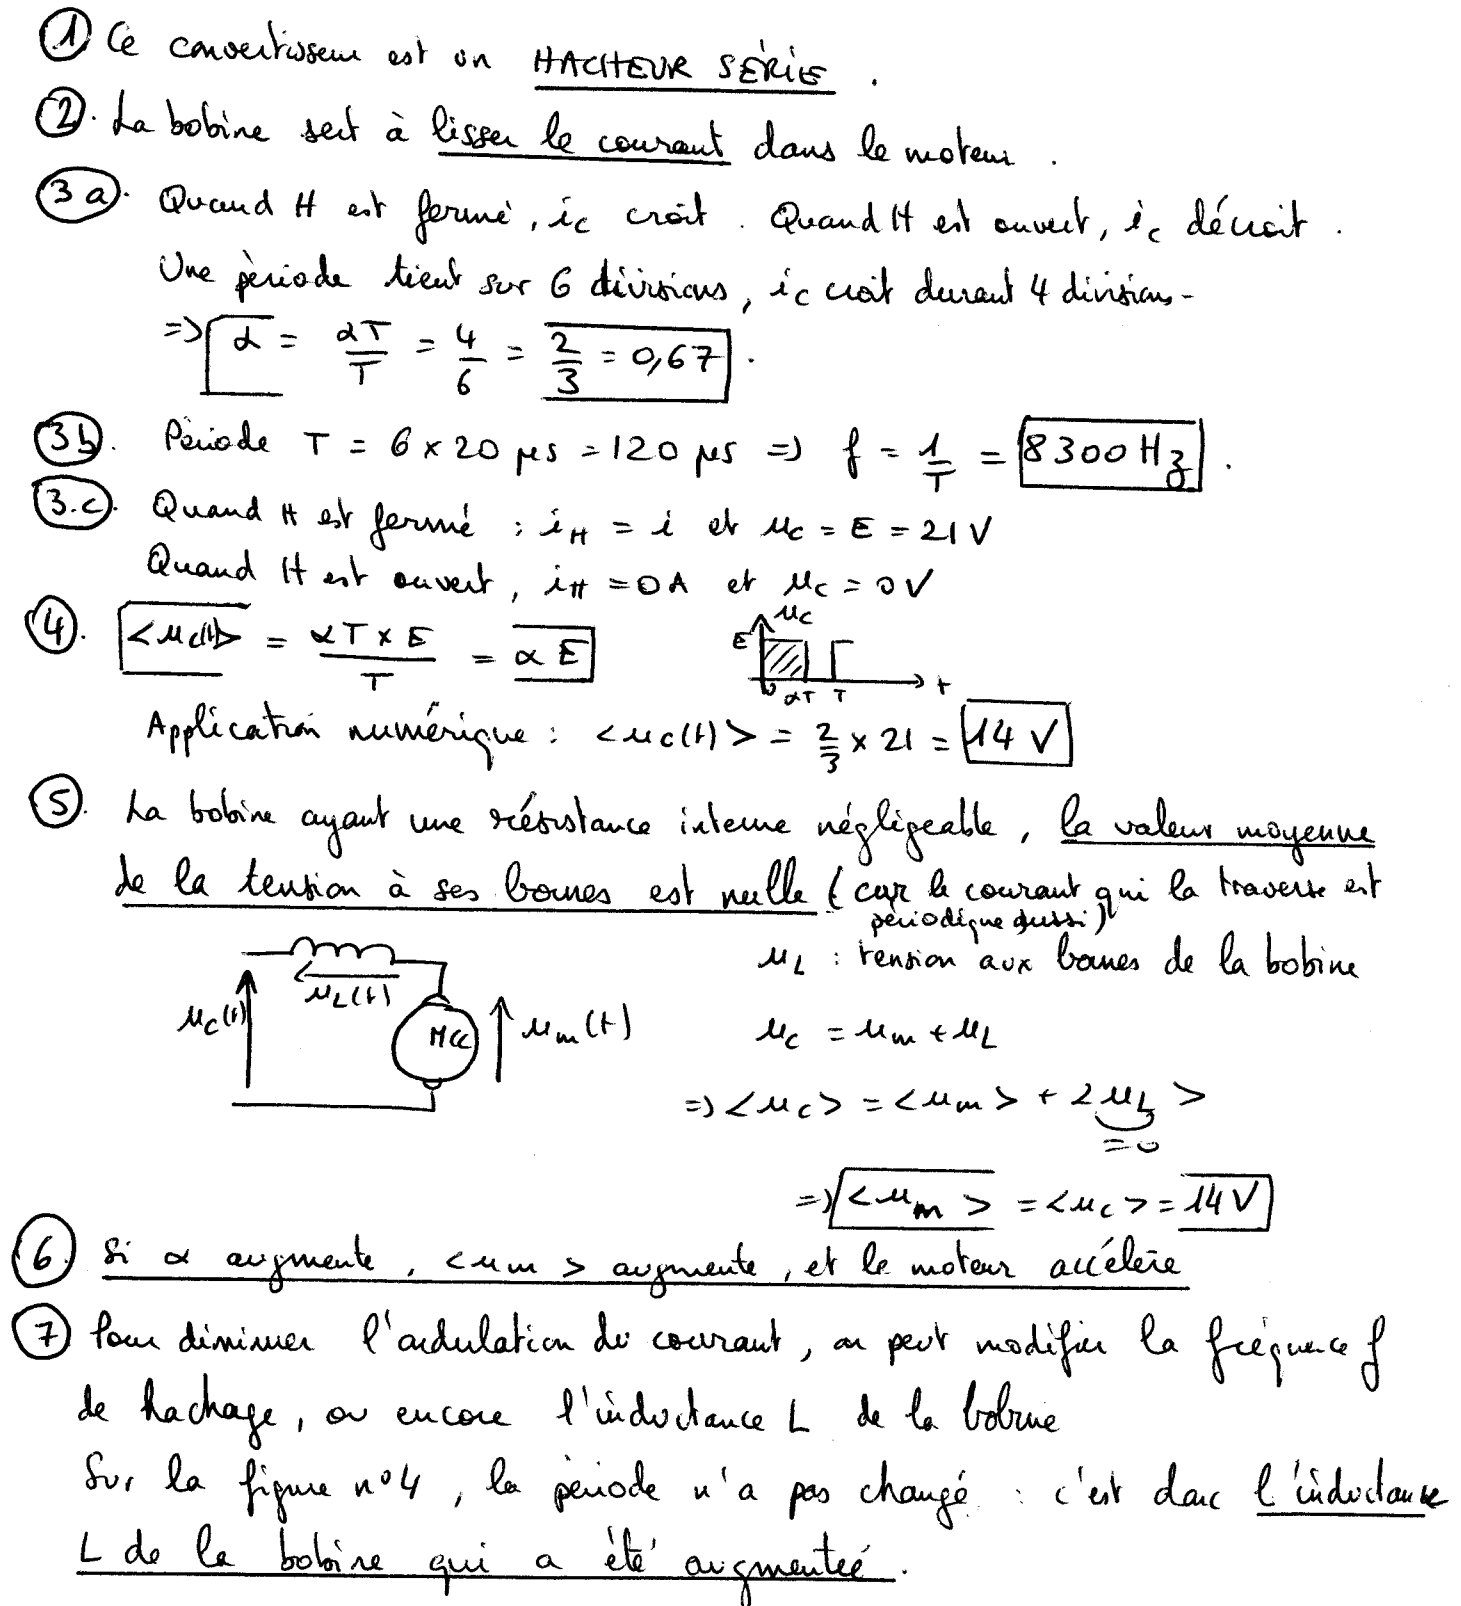 ① Ce convertisseur est un HACHEUR SÉRIE.
②. La bobine sert à lisser le courant dans le moteur.
③a. Quand H est fermé, ic croît. Quand H est ouvert, ic décroît.
Une période tient sur 6 divisions, ic croît durant 4 divisions-
=> α = αT/T = 4/6 = 2/3 = 0,67.
③b. Période T = 6 × 20 µs = 120 µs => f = 1/T = 8300 Hz.
③.c. Quand H est fermé : iH = i et uc = E = 21 V
Quand H est ouvert, iH = 0A et uc = 0V
④. <uc(t)> = αT × E / T = αE
uc
E
0 αT T t
Application numérique : <uc(t)> = 2/3 × 21 = 14 V
⑤. La bobine ayant une résistance interne négligeable, la valeur moyenne
de la tension à ses bornes est nulle (car le courant qui la traverse est
périodique aussi)
uL : tension aux bornes de la bobine
uc(t) uL(t) MCC um(t)
uc = um + uL
=> <uc> = <um> + <uL>
= 0
=> <um> = <uc> = 14 V
⑥. Si α augmente, <um> augmente, et le moteur accélère
⑦ Pour diminuer l'ondulation du courant, on peut modifier la fréquence f
de hachage, ou encore l'inductance L de la bobine
Sur la figure n°4, la période n'a pas changé : c'est donc l'inductance
L de la bobine qui a été augmenteé.